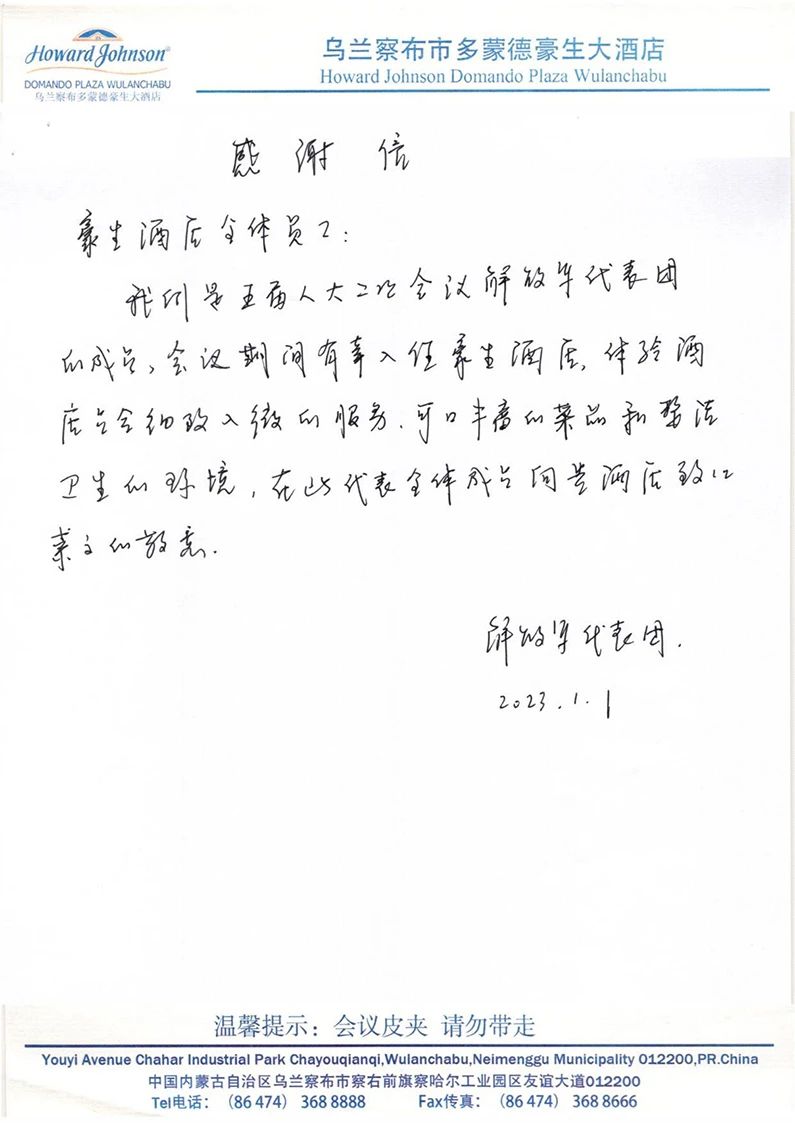 Howard Johnson®
DOMANDO PLAZA WULANCHABU
乌兰察布多蒙德豪生大酒店
乌兰察布市多蒙德豪生大酒店
Howard Johnson Domando Plaza Wulanchabu
感谢信
豪生酒店全体员工：
我们是五届人大二次会议解放军代表团
的成员，会议期间有幸入住豪生酒店，体验酒
店员会细致入微的服务、可口丰富的菜品和整洁
卫生的环境，在此代表全体成员向贵酒店致以
崇高的敬意.
解放军代表团.
2023.1.1
温馨提示：会议皮夹 请勿带走
Youyi Avenue Chahar Industrial Park Chayouqianqi,Wulanchabu,Neimenggu Municipality 012200,PR.China
中国内蒙古自治区乌兰察布市察右前旗察哈尔工业园区友谊大道012200
Tel电话：（86 474）368 8888 Fax传真：（86 474）368 8666